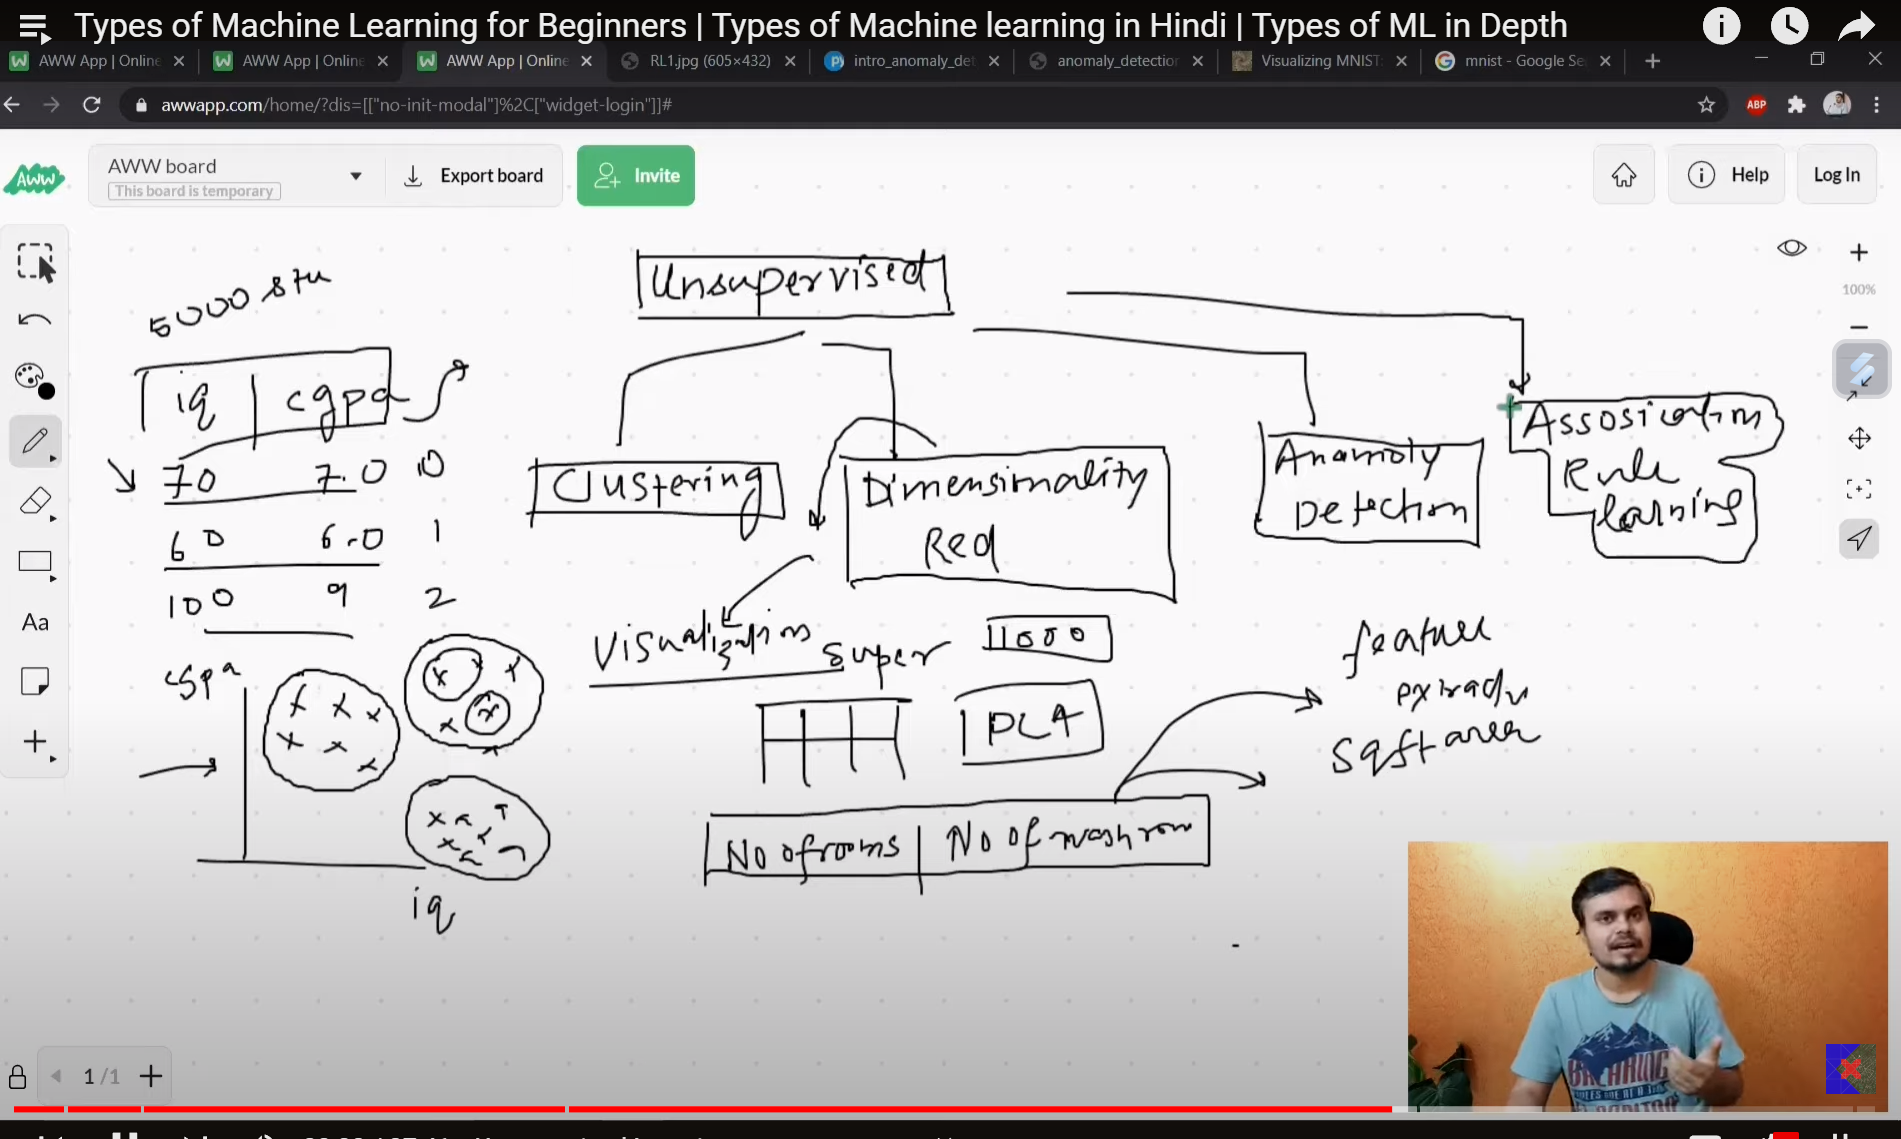 Types of Machine Learning for Beginners | Types of Machine learning in Hindi | Types of ML in Depth
AWW App | Online
AWW App | Online
AWW App | Online
RL1.jpg (605×432)
intro_anomaly_det
anomaly_detection
Visualizing MNIST:
mnist - Google Se
awwapp.com/home/?dis=[["no-init-modal"]%2C["widget-login"]]#
ABP
AWW
AWW board
This board is temporary
Export board
Invite
Help
Log In
100%
Aa
5000 stu
iq cgpa
70 7.0 10
60 6.0 1
100 9 2
cgpa
iq
Unsupervised
Clustering
Dimensionality
Red
Anamoly
Detection
Assosication
Rule
learning
Visualization
super
1000
PCA
feature
sqft area
No of rooms | No of washroom
1 /1
BREAKING